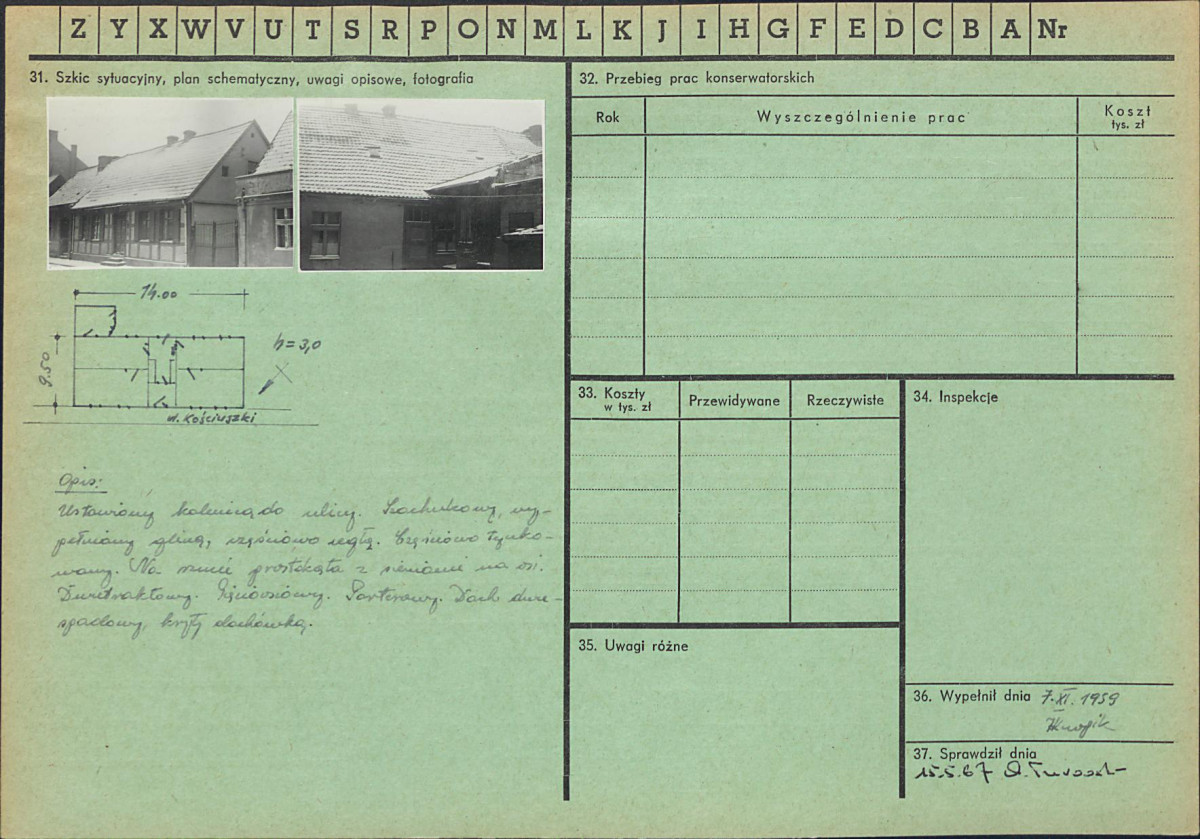 Z Y X W V U T S R P O N M L K J I H G F E D C B A Nr
31. Szkic sytuacyjny, plan schematyczny, uwagi opisowe, fotografia
14.00
9.50
h=3,0
ul. Kościuszki
Opis:
Ustawiony kalenicą do ulicy. Szachulcowy, wy-
pełniony gliną, częściowo cegłą. Częściowo tynko-
wany. Na rzucie prostokąta z sieniami na osi.
Dwutraktowy. Pięcioosiowy. Parterowy. Dach dwu-
spadowy, kryty dachówką.
32. Przebieg prac konserwatorskich
Rok
Wyszczególnienie prac
Koszt
tys. zł
33. Koszty
w tys. zł
Przewidywane
Rzeczywiste
34. Inspekcje
35. Uwagi różne
36. Wypełnił dnia 7.XI.1959
37. Sprawdził dnia
15.5.67